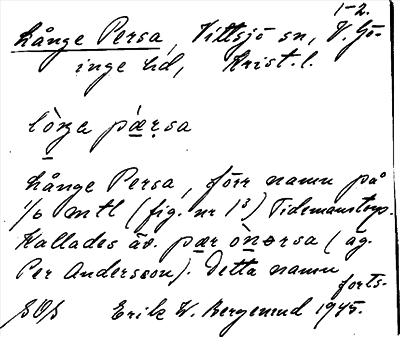 1-2.
Långe Persa, Vittsjö sn, V. Gö-
inge hd, Krist. l.
lòŋa pæ̀rsa
Långe Persa, förr namn på
1/6 mtl (fig. nr 1³) Tidemanstorp.
Kallades äv. pær ònərsa (äg.
Per Andersson). Detta namn
forts-
SOS Erik W. Bergenud 1945.